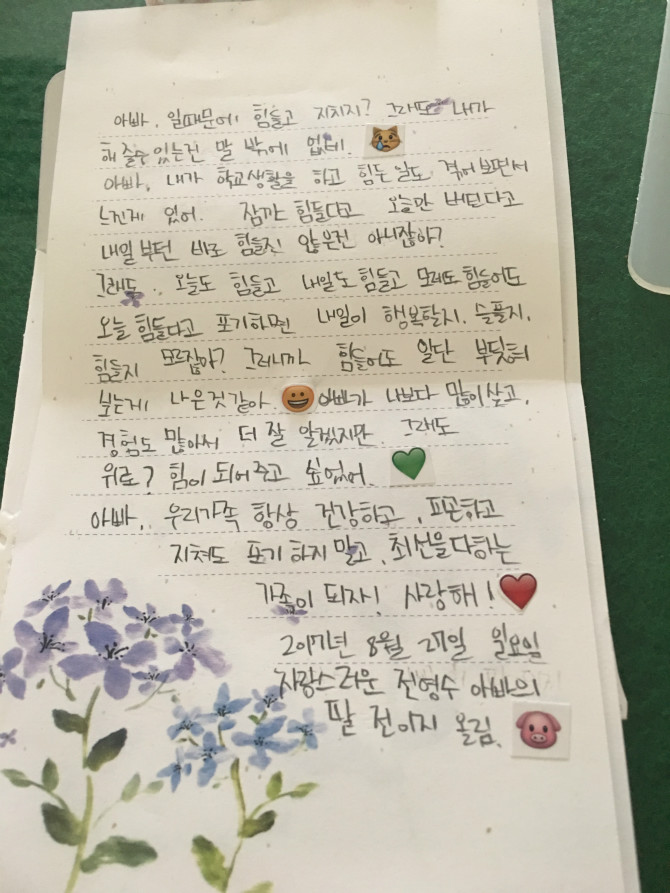 아빠, 일때문에 힘들고 지치지? 그래도 내가
해줄수 있는건 말 밖에 없네.
아빠, 내가 학교생활을 하고 힘든 날도 겪어보면서
느낀게 있어. 잠깐 힘들다고 오늘만 버틴다고
내일부턴 바로 힘들진 않은건 아니잖아?
그래도, 오늘도 힘들고 내일도 힘들고 모레도 힘들어도
오늘 힘들다고 포기하면 내일이 행복할지, 슬플지,
힘들지 모르잖아? 그러니까 힘들어도 일단 부딪혀
보는게 나은것 같아. 아빠가 나보다 많이 살고,
경험도 많아서 더 잘 알겠지만 그래도
위로? 힘이 되어주고 싶었어.
아빠, 우리가족 항상 건강하고, 피곤하고
지쳐도 포기하지 말고, 최선을 다하는
가족이 되자! 사랑해!
2017년 8월 27일 일요일
자랑스러운 전영수 아빠의
딸 전이지 올림.